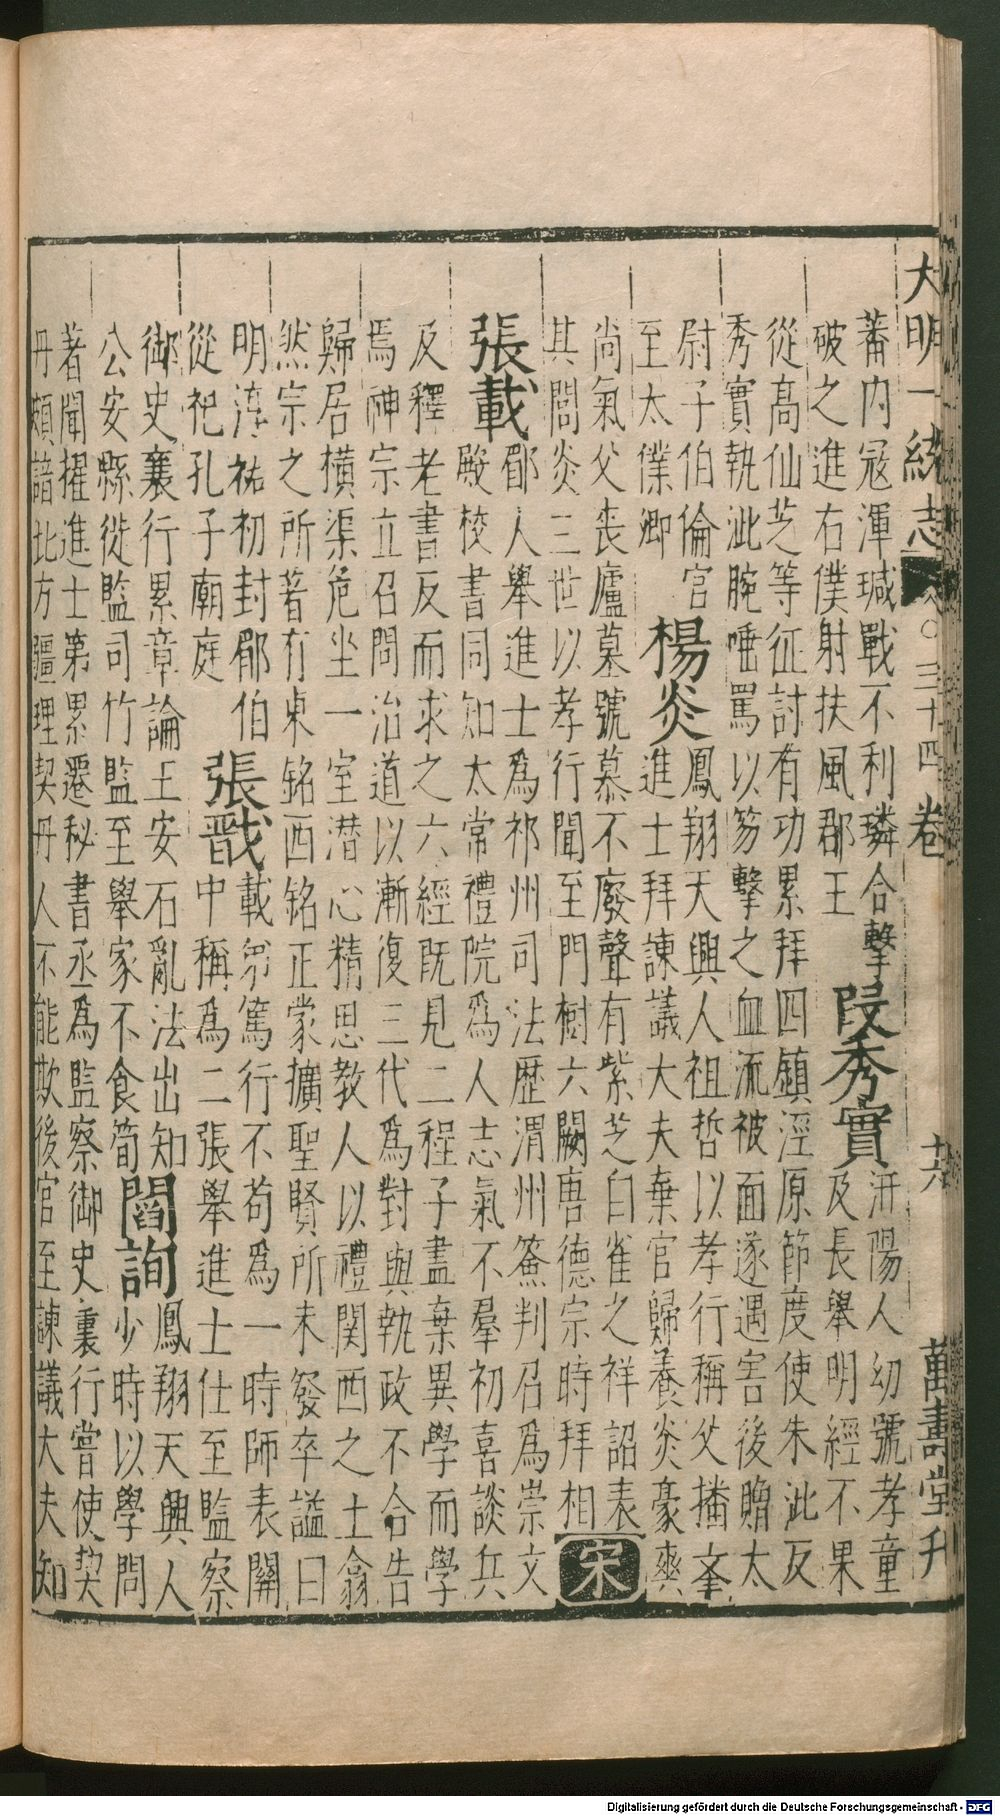 大明一統志 三十四卷 十六 萬壽堂刊
蕃内冦渾瑊戰不利璘合擊
破之進右僕射扶風郡王
段秀實
汧陽人幼號孝童
及長舉明經不果
從高仙芝等征討有功累拜四鎮涇原節度使朱泚反
秀實執泚腕唾罵以笏擊之血流被面遂遇害後贈太
尉子伯倫官
至太僕卿
楊炎
鳳翔天興人祖哲以孝行稱父播舉
進士拜諫議大夫棄官歸養炎豪爽
尚氣父丧廬墓號慕不廢聲有紫芝白雀之祥詔表
其閭炎三世以孝行聞至門樹六闕唐德宗時拜相
宋
張載
郿人舉進士為祁州司法歷渭州簽判召為崇文
殿校書同知太常禮院為人志氣不羣初喜談兵
及釋老書反而求之六經既見二程子盡棄異學而學
焉神宗立召問治道以漸復三代為對與執政不合告
歸居横渠危坐一室潜心精思教人以禮関西之士翕
然宗之所著有東銘西銘正蒙擴聖賢所未發卒謚曰
明淳祐初封郿伯
從祀孔子廟庭
張戩
載弟篤行不苟為一時師表關
中稱為二張舉進士仕至監察
御史裏行累章論王安石亂法出知
公安縣徙監司竹監至舉家不食筍
閻詢
鳳翔天興人
少時以學問
著聞擢進士第累遷秘書丞為監察御史裏行嘗使契
丹頗諳北方疆理契丹人不能欺後官至諫議大夫知
Digitalisierung gefördert durch die Deutsche Forschungsgemeinschaft - DFG